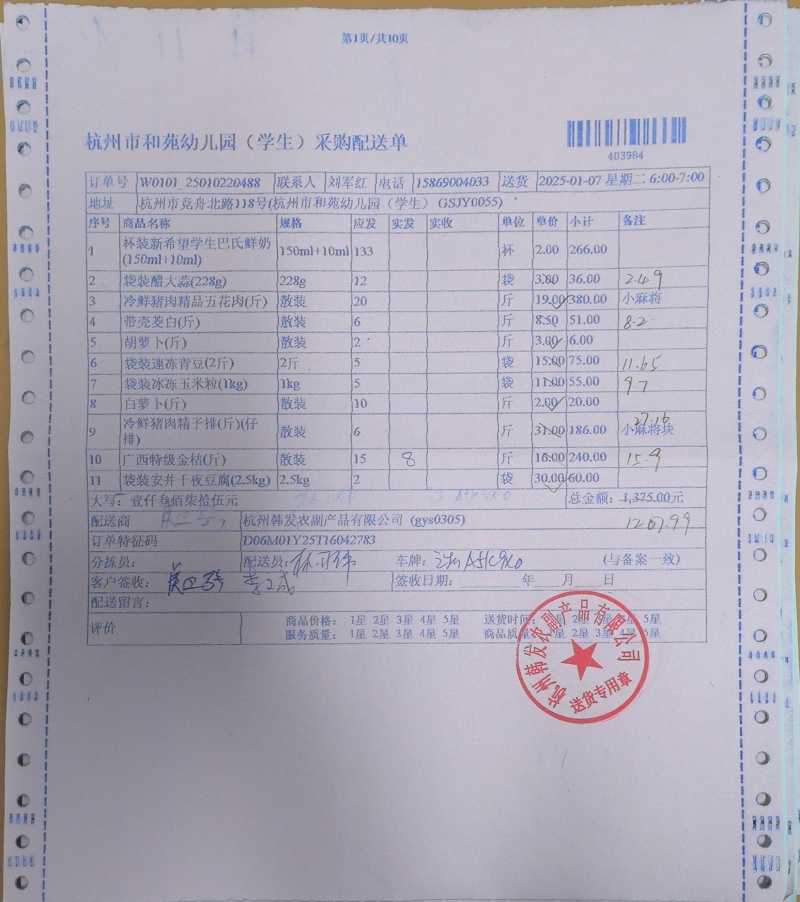 第1页/共10页
杭州市和苑幼儿园（学生）采购配送单
403984
订单号 W0101_25010220488 联系人 刘军红 电话 15869004033 送货 2025-01-07 星期二 6:00-7:00
地址 杭州市竞舟北路118号(杭州市和苑幼儿园（学生） GSJY0055)
序号 商品名称 规格 应发 实发 实收 单位 单价 小计 备注
1 杯装新希望学生巴氏鲜奶(150ml+10ml) 150ml+10ml 133 杯 2.00 266.00
2 袋装醋大蒜(228g) 228g 12 袋 3.00 36.00 2.49
3 冷鲜猪肉精品五花肉(斤) 散装 20 斤 19.00 380.00 小麻将
4 带壳茭白(斤) 散装 6 斤 8.50 51.00 8.2
5 胡萝卜(斤) 散装 2 斤 3.00 6.00
6 袋装速冻青豆(2斤) 2斤 5 袋 15.00 75.00 11.65
7 袋装冰冻玉米粒(1kg) 1kg 5 袋 11.00 55.00 9.7
8 白萝卜(斤) 散装 10 斤 2.00 20.00
9 冷鲜猪肉精子排(斤)(仔排) 散装 6 斤 31.00 186.00 小麻将块 27.16
10 广西特级金桔(斤) 散装 15 8 斤 16.00 240.00 15.9
11 袋装安井千夜豆腐(2.5kg) 2.5kg 2 袋 30.00 60.00
大写：壹仟叁佰柒拾伍元 总金额：1,375.00元
配送商 杭州韩发农副产品有限公司 (gys0305)
订单特征码 D06M01Y25T16042783
分拣员： 配送员： 车牌： (与备案一致)
客户签收： 签收日期： 年 月 日
配送留言：
评价 商品价格： 1星 2星 3星 4星 5星 送货时间： 2星 3星 4星 5星
服务质量： 1星 2星 3星 4星 5星 商品质量： 1星 2星 3星 4星 5星
杭州韩发农副产品有限公司
送货专用章